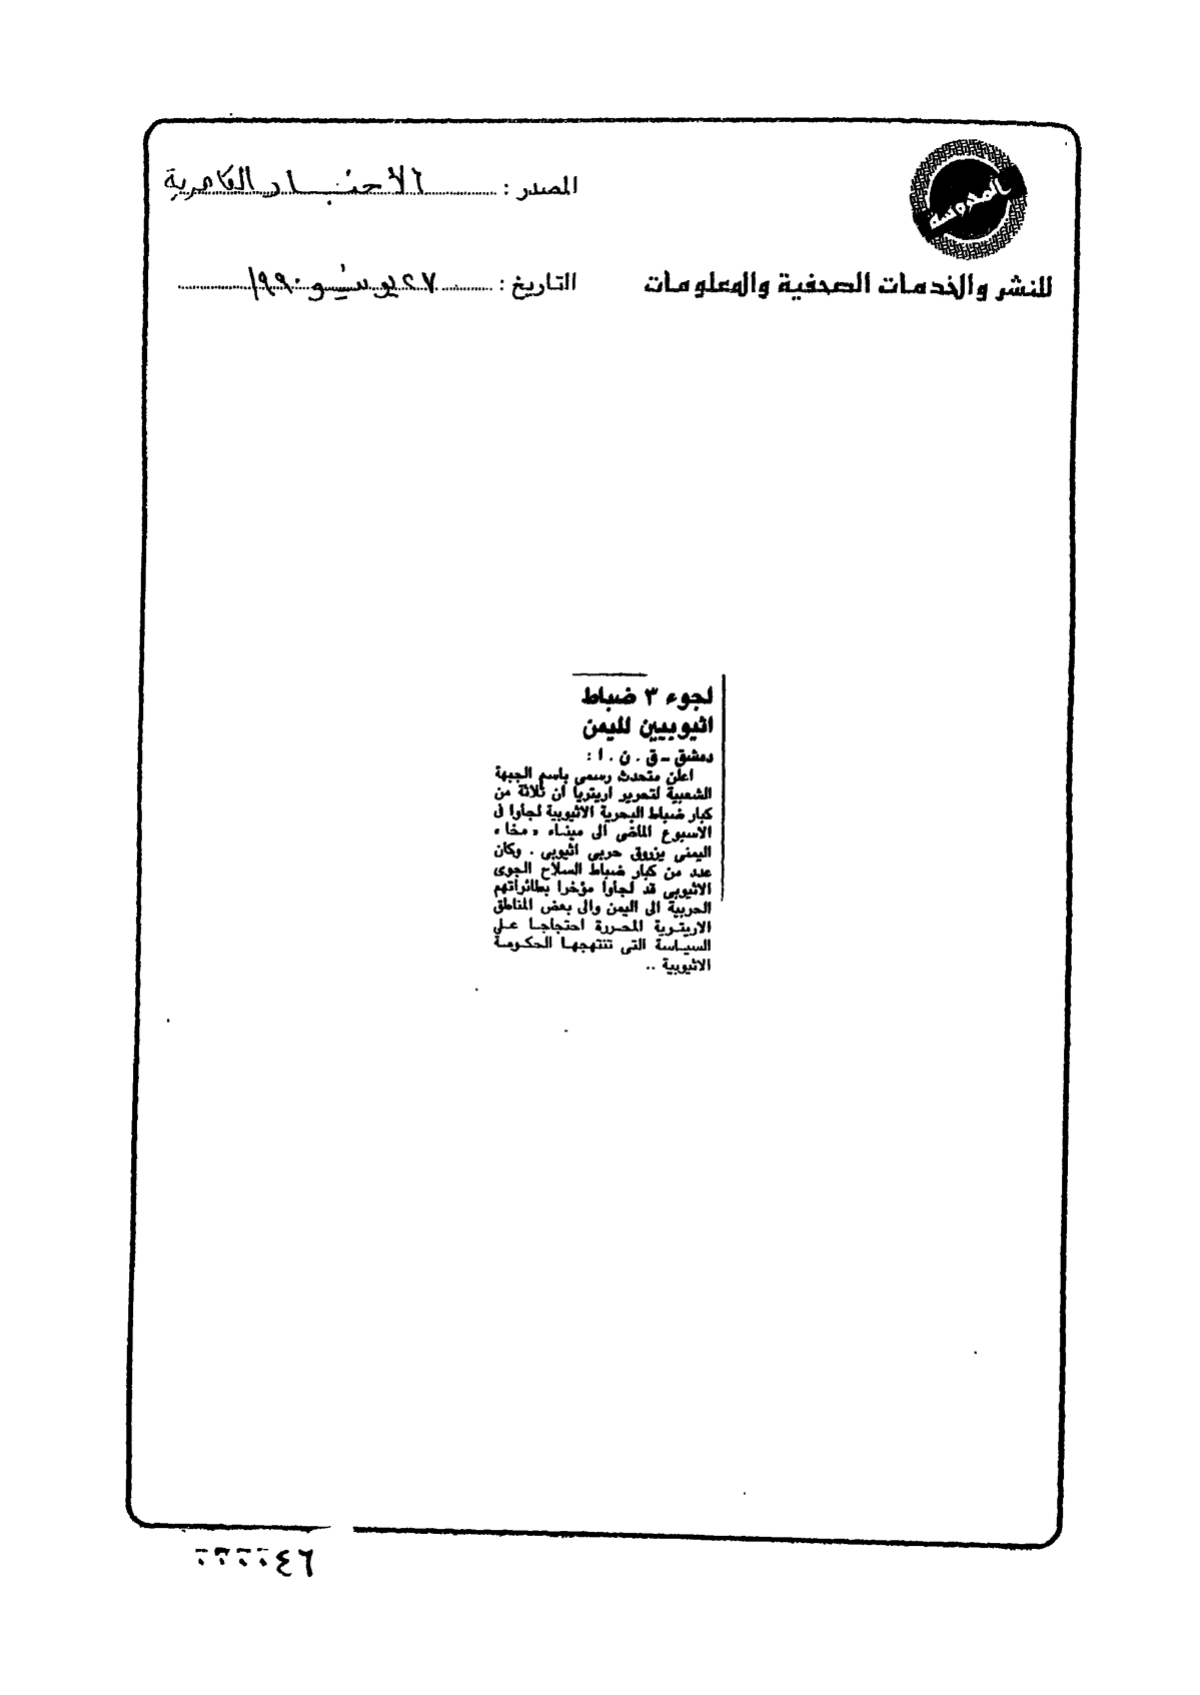 المحروسة
للنشر والخدمات الصحفية والمعلومات
المصدر : الأخبار القاهرية
التاريخ : ٢٧ يونيو ١٩٩٠
لجوء ٣ ضباط
اثيوبيين لليمن
دمشق - ق . ن . ا :
اعلن متحدث رسمى باسم الجبهة
الشعبية لتحرير اريتريا ان ثلاثة من
كبار ضباط البحرية الاثيوبية لجأوا فى
الاسبوع الماضى الى ميناء « مخا »
اليمنى بزورق حربى اثيوبى . وكان
عدد من كبار ضباط السلاح الجوى
الاثيوبى قد لجأوا مؤخرا بطائراتهم
الحربية الى اليمن والى بعض المناطق
الاريترية المحررة احتجاجا على
السياسة التى تنتهجها الحكومة
الاثيوبية ..